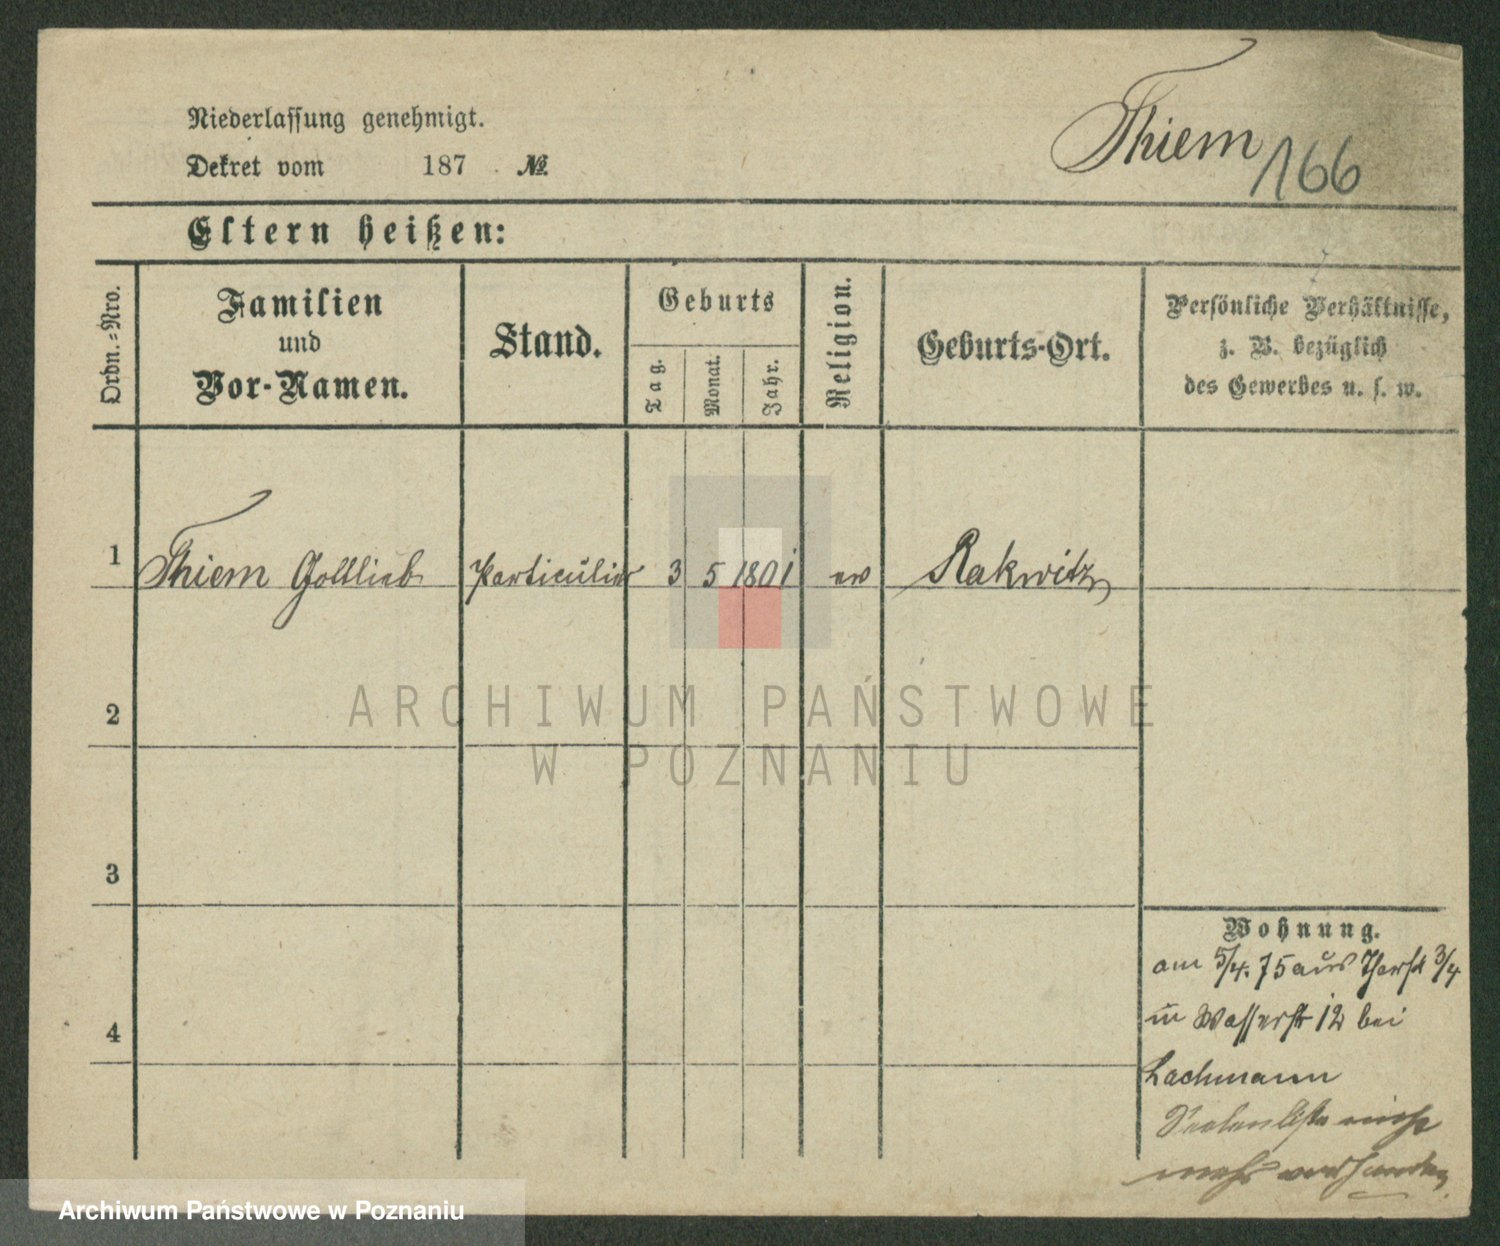 Niederlassung genehmigt.
Dekret vom 187 . №
Thiem 166
Eltern heißen:
Ordn.-Nro.
Familien
und
Vor-Namen.
Stand.
Geburts
Tag.
Monat.
Jahr.
Religion.
Geburts-Ort.
Persönliche Verhältnisse,
z. B. bezüglich
des Gewerbes u. s. w.
1 Thiem Gottlieb Particulier 3 5 1801 ev Rakwitz
2
3
4
Wohnung.
am 5/4. 75 aus 3/4
in Wasserstr 12 bei
Lachmann
Seelenliste nicht
mehr vorhanden.
ARCHIWUM PAŃSTWOWE
W POZNANIU
Archiwum Państwowe w Poznaniu